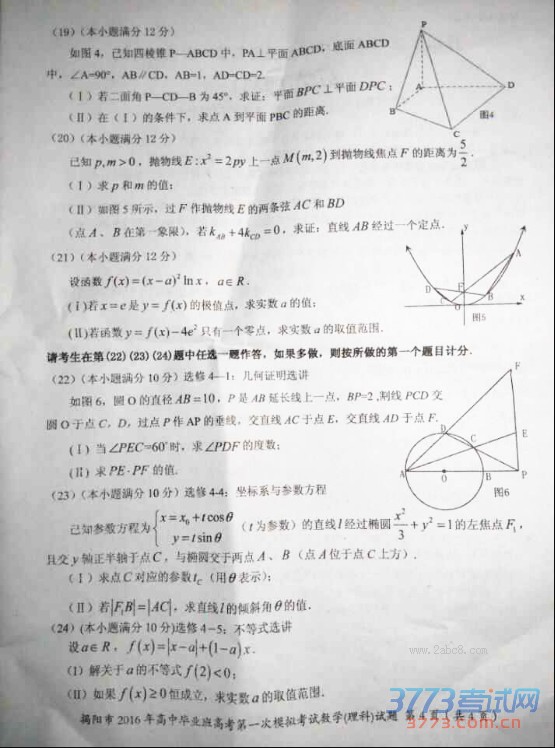 (19)(本小题满分12分)
如图4，已知四棱锥P—ABCD中，PA⊥平面ABCD，底面ABCD
中，∠A=90°，AB∥CD，AB=1，AD=CD=2.
(Ⅰ)若二面角P—CD—B为45°，求证：平面BPC⊥平面DPC；
(Ⅱ)在(Ⅰ)的条件下，求点A到平面PBC的距离.
P
A
D
B
C
图4
(20)(本小题满分12分)
已知p,m>0，抛物线E:x²=2py上一点M(m,2)到抛物线焦点F的距离为5/2.
(Ⅰ)求p和m的值；
(Ⅱ)如图5所示，过F作抛物线E的两条弦AC和BD
(点A、B在第一象限)，若k_AB+4k_CD=0，求证：直线AB经过一个定点.
y
A
D
E
C
B
x
图5
(21)(本小题满分12分)
设函数f(x)=(x−a)²ln x，a∈R.
(Ⅰ)若x=e是y=f(x)的极值点，求实数a的值；
(Ⅱ)若函数y=f(x)−4e²只有一个零点，求实数a的取值范围.
请考生在第(22)(23)(24)题中任选一题作答，如果多做，则按所做的第一个题目计分.
(22)(本小题满分10分)选修4—1：几何证明选讲
如图6，圆O的直径AB=10，P是AB延长线上一点，BP=2,割线PCD交
圆O于点C，D，过点P作AP的垂线，交直线AC于点E，交直线AD于点F.
(Ⅰ)当∠PEC=60°时，求∠PDF的度数；
(Ⅱ)求PE·PF的值.
F
D
C
E
A
O
B
P
图6
(23)(本小题满分10分)选修4-4：坐标系与参数方程
已知参数方程为{x=x₀+tcosθ
y=tsinθ
(t为参数)的直线l经过椭圆x²/3+y²=1的左焦点F₁，
且交y轴正半轴于点C，与椭圆交于两点A、B(点A位于点C上方).
(Ⅰ)求点C对应的参数t_C(用θ表示)；
(Ⅱ)若|F₁B|=|AC|，求直线l的倾斜角θ的值.
(24)(本小题满分10分)选修4—5：不等式选讲
设a∈R，f(x)=|x−a|+(1−a)x.
(I)解关于a的不等式f(2)<0；
(II)如果f(x)≥0恒成立，求实数a的取值范围.
www.2abc8.com
揭阳市2016年高中毕业班高考第一次模拟考试数学(理科)试题 第4页(共4页)
3773考试网
www.3773.com.cn